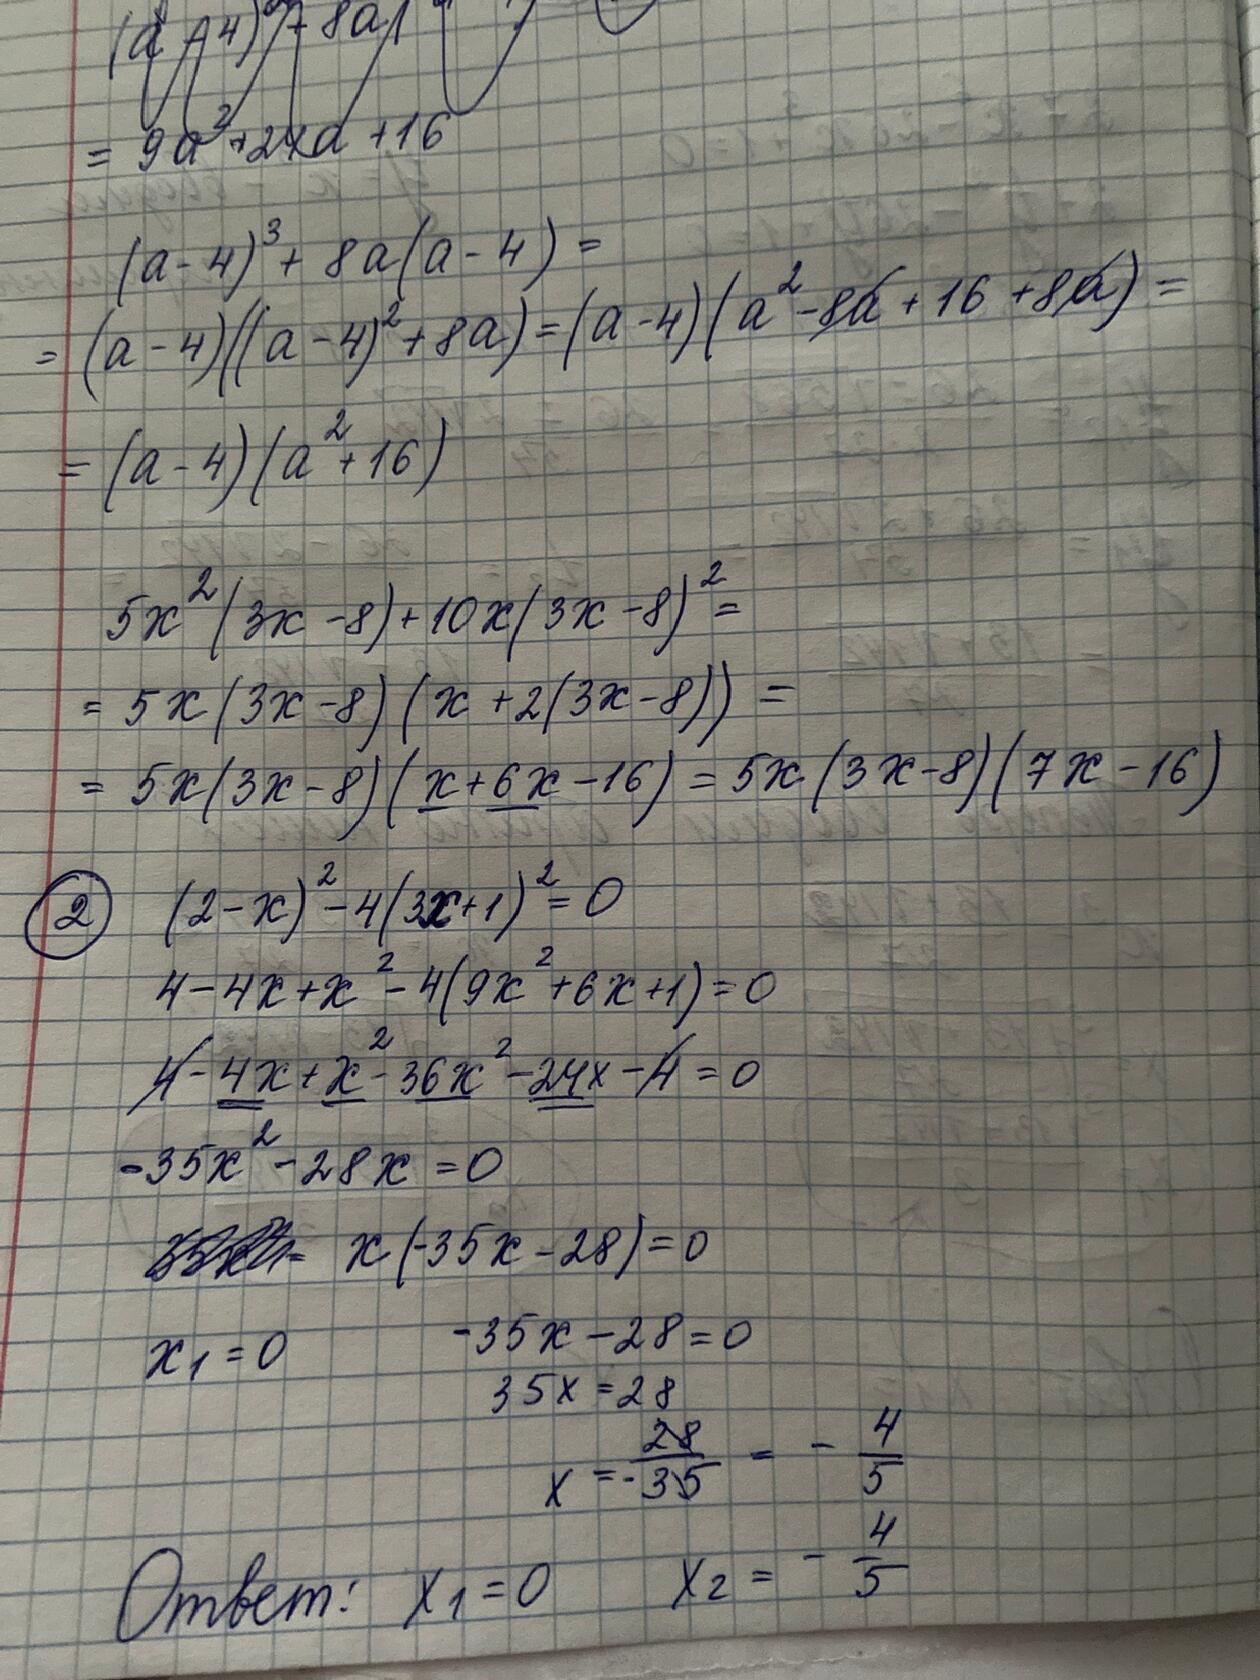 = 9a² + 24a + 16
(a - 4)³ + 8a(a - 4) =
= (a - 4)((a - 4)² + 8a) = (a - 4)(a² - 8a + 16 + 8a) =
= (a - 4)(a² + 16)
5x²(3x - 8) + 10x(3x - 8)² =
= 5x(3x - 8)(x + 2(3x - 8)) =
= 5x(3x - 8)(x + 6x - 16) = 5x(3x - 8)(7x - 16)
2 (2 - x)² - 4(3x + 1)² = 0
4 - 4x + x² - 4(9x² + 6x + 1) = 0
4 - 4x + x² - 36x² - 24x - 4 = 0
-35x² - 28x = 0
x(-35x - 28) = 0
x₁ = 0 -35x - 28 = 0
35x = 28
x = 28/-35 = - 4/5
Ответ: x₁ = 0 x₂ = - 4/5